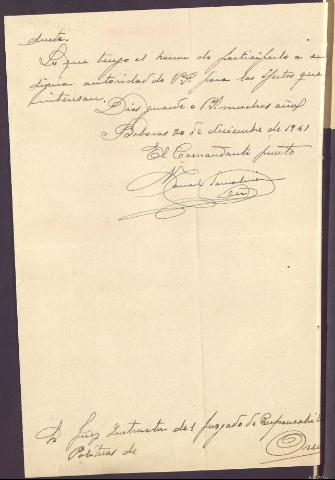 Lo que tengo el honor de participarle a su
digna autoridad de V.S. para los efectos que
Dios guarde a V.S. muchos años
Boboras 20 de diciembre de 1941
El Comandante puesto
Manuel
Sr Juez Instructor del Juzgado de Responsabili
Políticas de